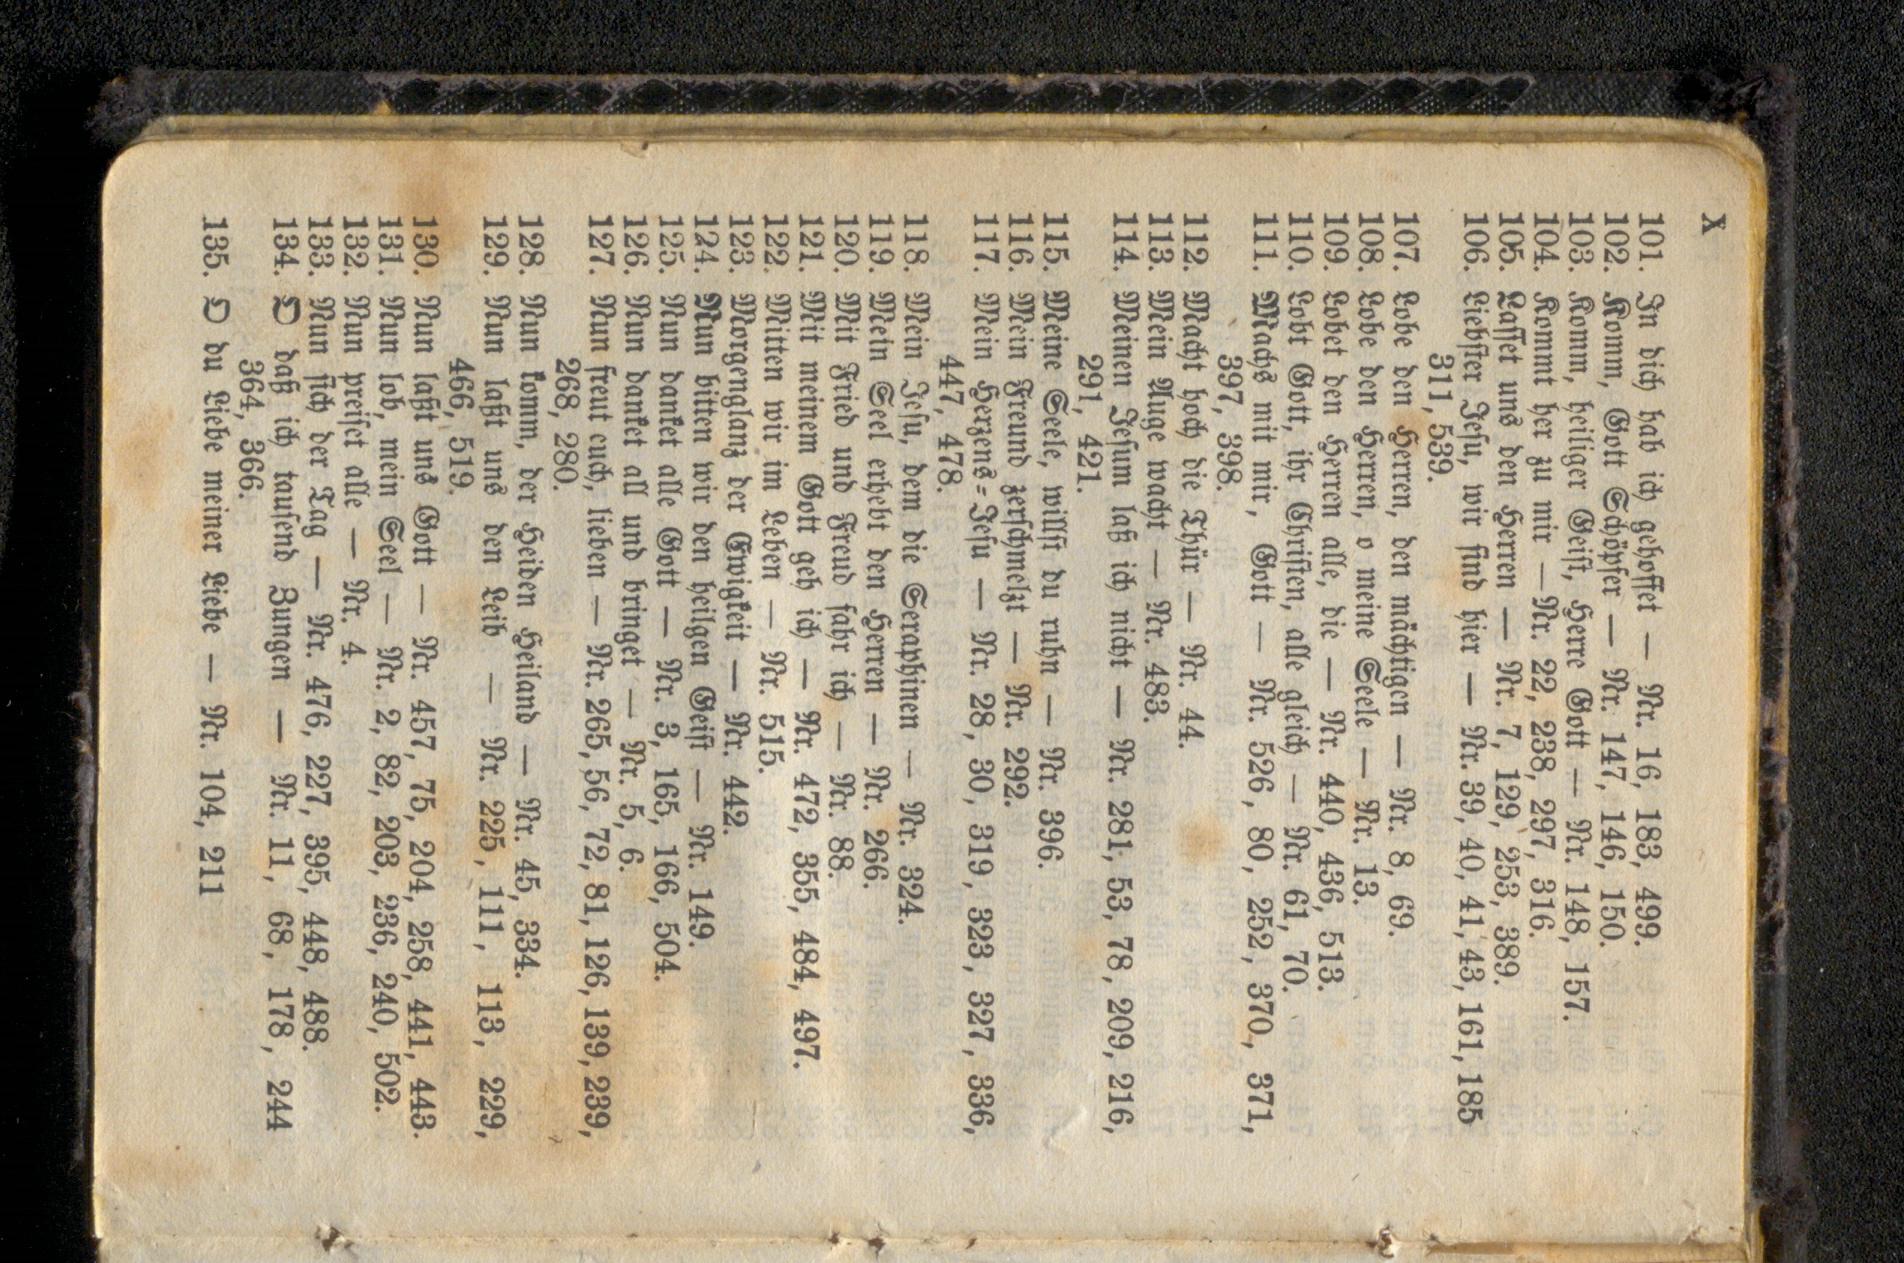 X
101. In dich hab ich gehoffet — Nr. 16, 183, 499.
102. Komm, Gott Schöpfer — Nr. 147, 146, 150.
103. Komm, heiliger Geist, Herre Gott — Nr. 148, 157.
104. Kommt her zu mir — Nr. 22, 238, 297, 316.
105. Lasset uns den Herren — Nr. 7, 129, 253, 389.
106. Liebster Jesu, wir sind hier — Nr. 39, 40, 41, 43, 161, 185
311, 539.
107. Lobe den Herren, den mächtigen — Nr. 8, 69.
108. Lobe den Herren, o meine Seele — Nr. 13.
109. Lobet den Herren alle, die — Nr. 440, 436, 513.
110. Lobt Gott, ihr Christen, alle gleich — Nr. 61, 70.
111. Machs mit mir, Gott — Nr. 526, 80, 252, 370, 371,
397, 398.
112. Macht hoch die Thür — Nr. 44.
113. Mein Auge wacht — Nr. 483.
114. Meinen Jesum laß ich nicht — Nr. 281, 53, 78, 209, 216,
291, 421.
115. Meine Seele, willst du ruhn — Nr. 396.
116. Mein Freund zerschmelzt — Nr. 292.
117. Mein Herzens-Jesu — Nr. 28, 30, 319, 323, 327, 336,
447, 478.
118. Mein Jesu, dem die Seraphinen — Nr. 324.
119. Mein Seel erhebt den Herren — Nr. 266.
120. Mit Fried und Freud fahr ich — Nr. 88.
121. Mit meinem Gott geh ich — Nr. 472, 355, 484, 497.
122. Mitten wir im Leben — Nr. 515.
123. Morgenglanz der Ewigkeit — Nr. 442.
124. Nun bitten wir den heilgen Geist — Nr. 149.
125. Nun danket alle Gott — Nr. 3, 165, 166, 504.
126. Nun danket all und bringet — Nr. 5, 6.
127. Nun freut euch, lieben — Nr. 265, 56, 72, 81, 126, 139, 239,
268, 280.
128. Nun komm, der Heiden Heiland — Nr. 45, 334.
129. Nun laßt uns den Leib — Nr. 225, 111, 113, 229,
466, 519.
130. Nun laßt uns Gott — Nr. 457, 75, 204, 258, 441, 443.
131. Nun lob, mein Seel — Nr. 2, 82, 203, 236, 240, 502.
132. Nun preiset alle — Nr. 4.
133. Nun sich der Tag — Nr. 476, 227, 395, 448, 488.
134. O daß ich tausend Zungen — Nr. 11, 68, 178, 244
364, 366.
135. O du Liebe meiner Liebe — Nr. 104, 211